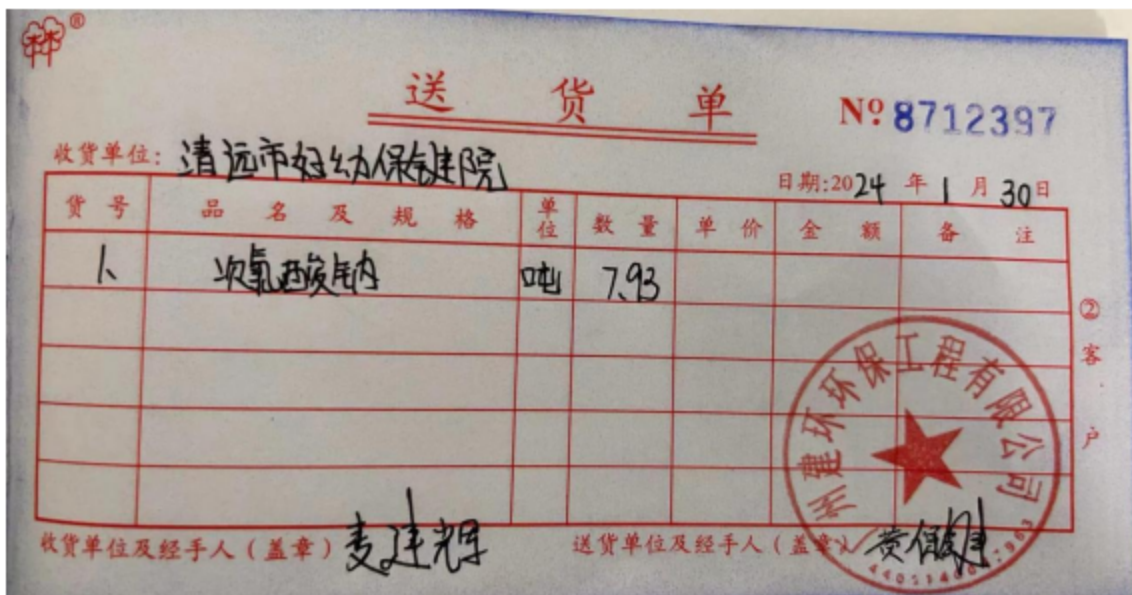 送货单
№ 8712397
收货单位: 清远市妇幼保健院
日期:2024 年 1 月 30 日
货号 品名及规格 单位 数量 单价 金额 备注
1、 次氯酸钠 吨 7.93
②客户
州建环环保工程有限公司
收货单位及经手人(盖章) 麦建辉
送货单位及经手人(盖章) 黄